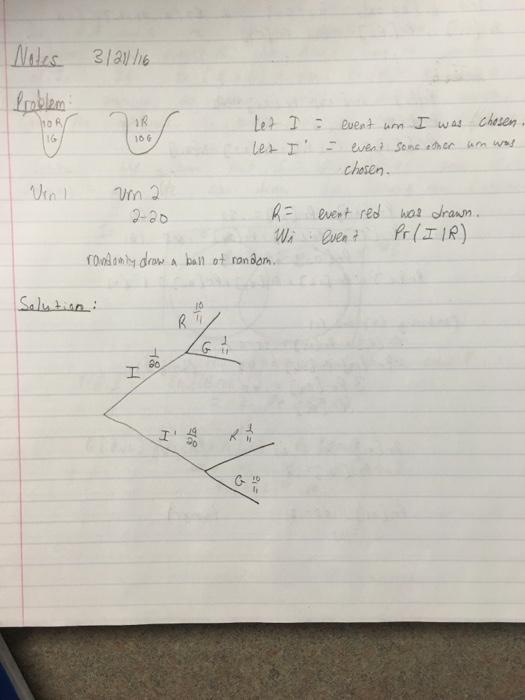 Notes 3/21/16
Problem:
10R 1R
1G 10G
Let I = event urn I was chosen.
Let I' = event some other urn was
chosen.
Urn 1 Urn 2
2-20
R = event red was drawn.
Wi: event Pr(I|R)
randomly draw a ball at random.
Solution:
R 10/11
G 1/11
I 1/20
I' 19/20
R 1/11
G 10/11